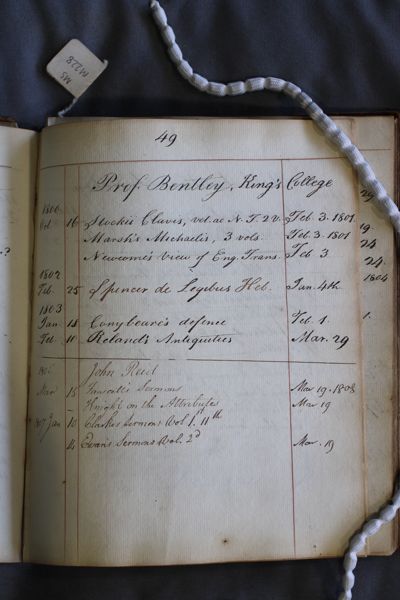 MS
M 228
49
Prof. Bentley, King's College
1800
Oct 16 Stockii Clavis, vet. ac N. T. 2 V. Feb. 3. 1801
Marsh's Michaelis, 3 vols. Feb. 3. 1801
Newcome's View of Eng. Trans. Feb 3
1802
Feb. 25 Spencer de Legibus Heb. Jan. 4th 1804
1803
Jan 18 Conybeare's defence Feb. 1.
Feb. 10 Reland's Antiquities Mar. 29
John Reid
Mar 15 Fawcett's Sermons Mar 19. 1808
– Knight on the Attributes Mar 19
Jan 10 Clarkes Sermons Vol 1. 11th
Evans Sermons Vol. 2d Mar. 19
29
19
24
24
1.